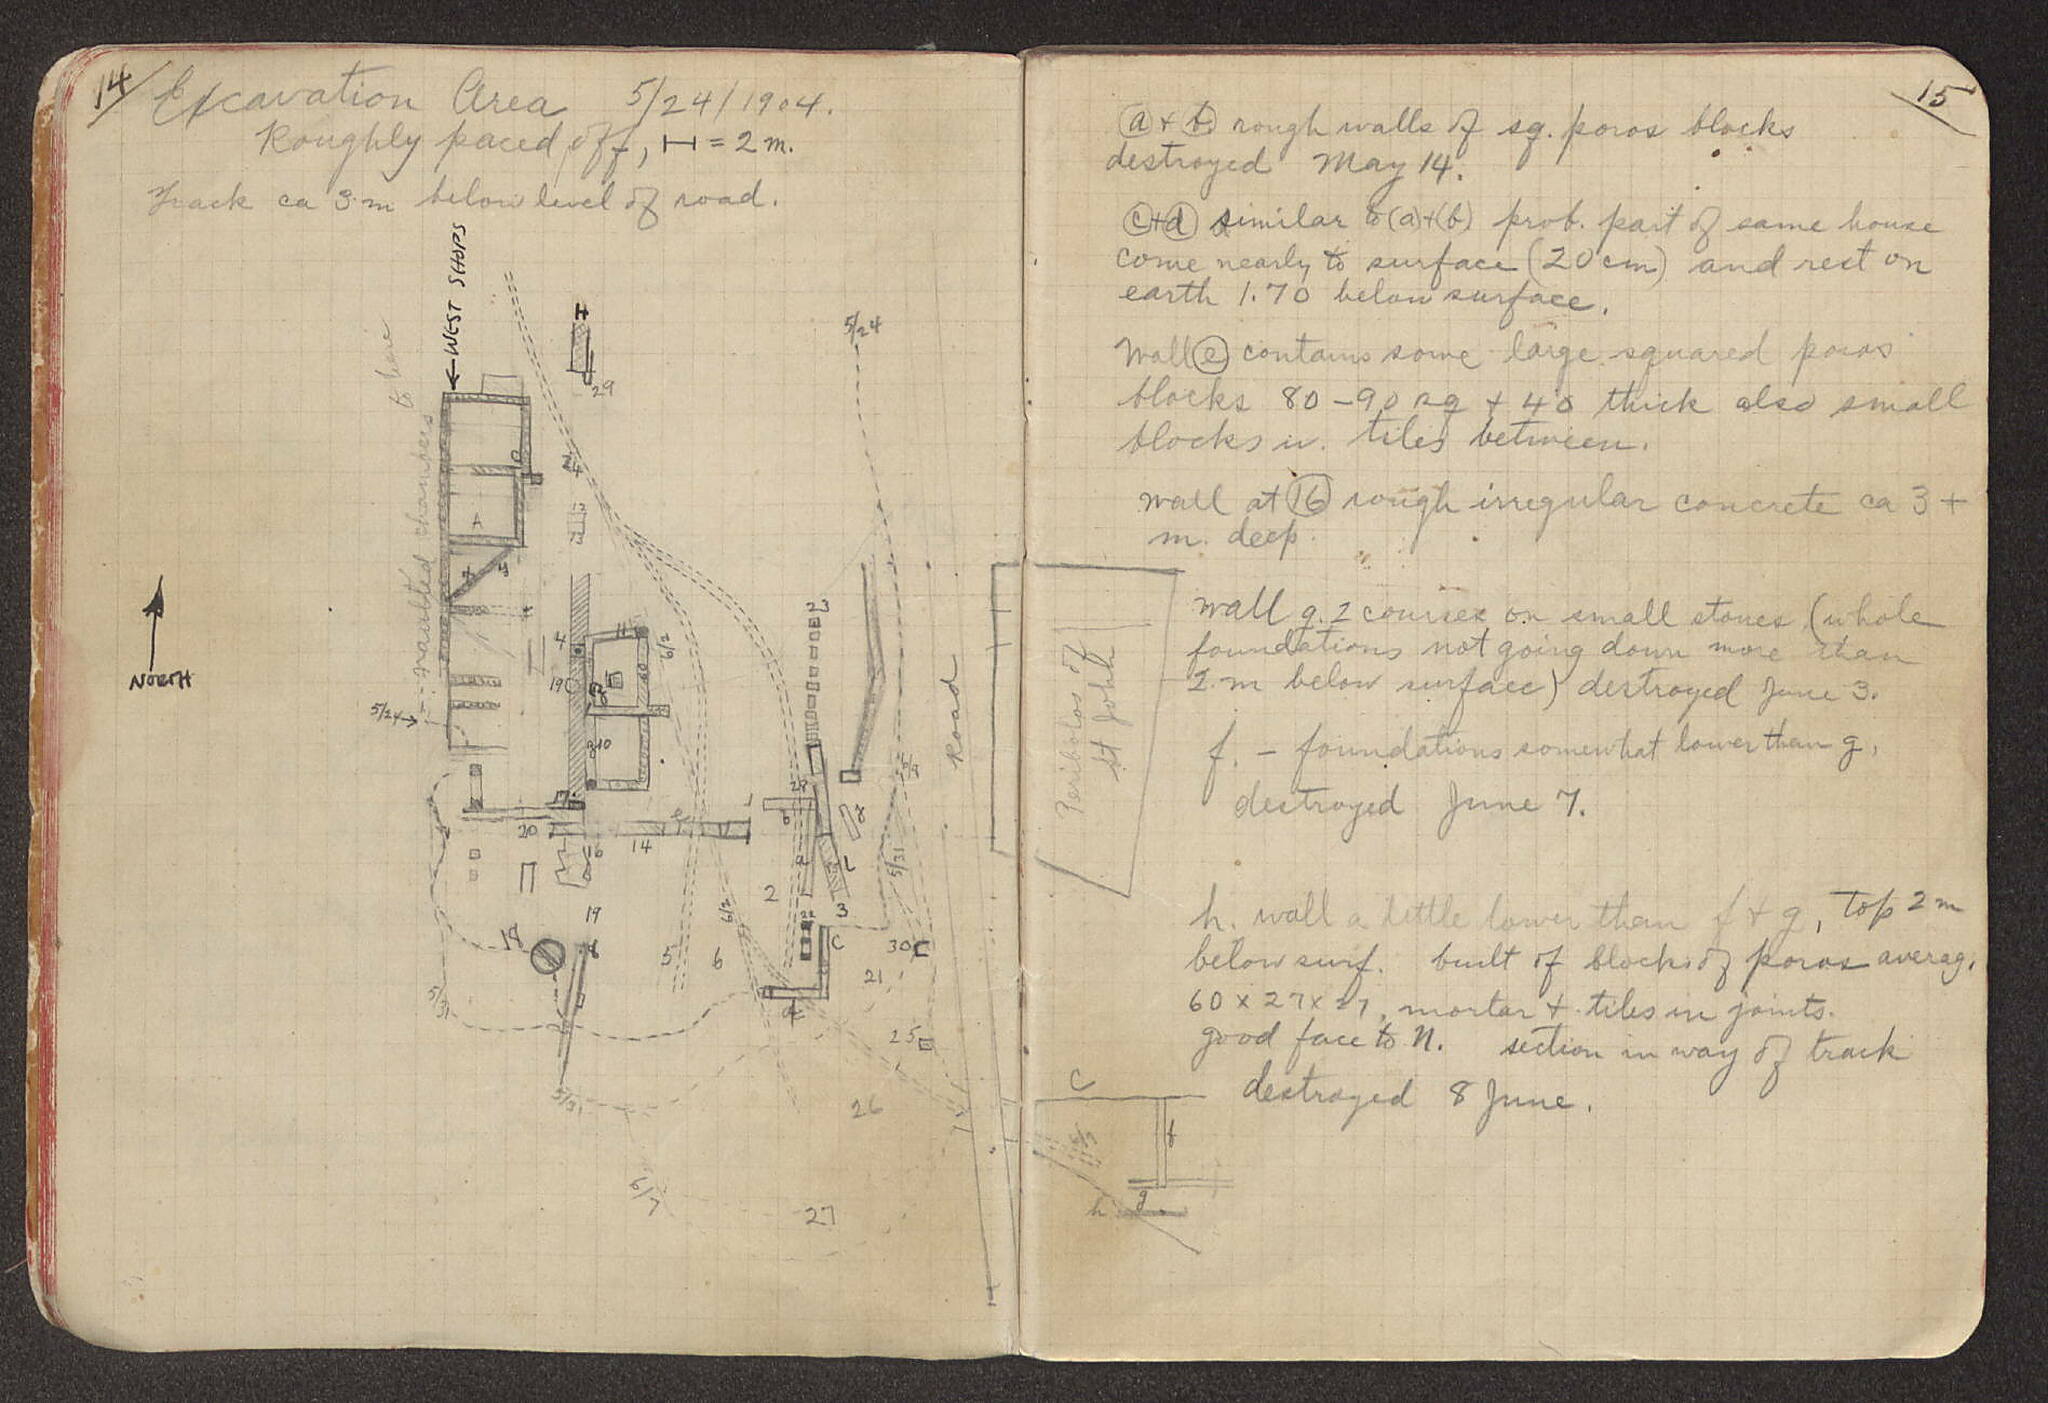 14/ Excavation Area 5/24/1904.
Roughly paced off, = 2 m.
Track ca 3 m below level of road.
← WEST SHOPS
vaulted chambers to here
H
29
5/24
24
13
A
23
4
11
6/2
19
NORTH
5/24 →
Road
10
28
20
14
e
b
8
L
a
5/31
2
6/2
22
3
19
18
C
30
5
6
21
5/31
d
25
5/31
26
6/7
27
15
(a) + (b) rough walls of sq. poros blocks
destroyed May 14.
(c)+(d) similar to (a)+(b) prob. part of same house
come nearly to surface (20 cm) and rest on
earth 1.70 below surface.
Wall (e) contains some large squared poros
blocks 80-90 sq + 40 thick also small
blocks w. tiles between.
Wall at (16) rough irregular concrete ca 3 +
m. deep.
Wall g. 2 courses on small stones (whole
foundations not going down more than
2 m below surface) destroyed June 3.
f. – foundations somewhat lower than g,
destroyed June 7.
Peribolos of
St John
h. wall a little lower than f + g, top 2 m
below surf. built of blocks of poros averag.
60 x 27 x 27, mortar + tiles in joints.
good face to N. section in way of track
destroyed 8 June.
C
f
g
h